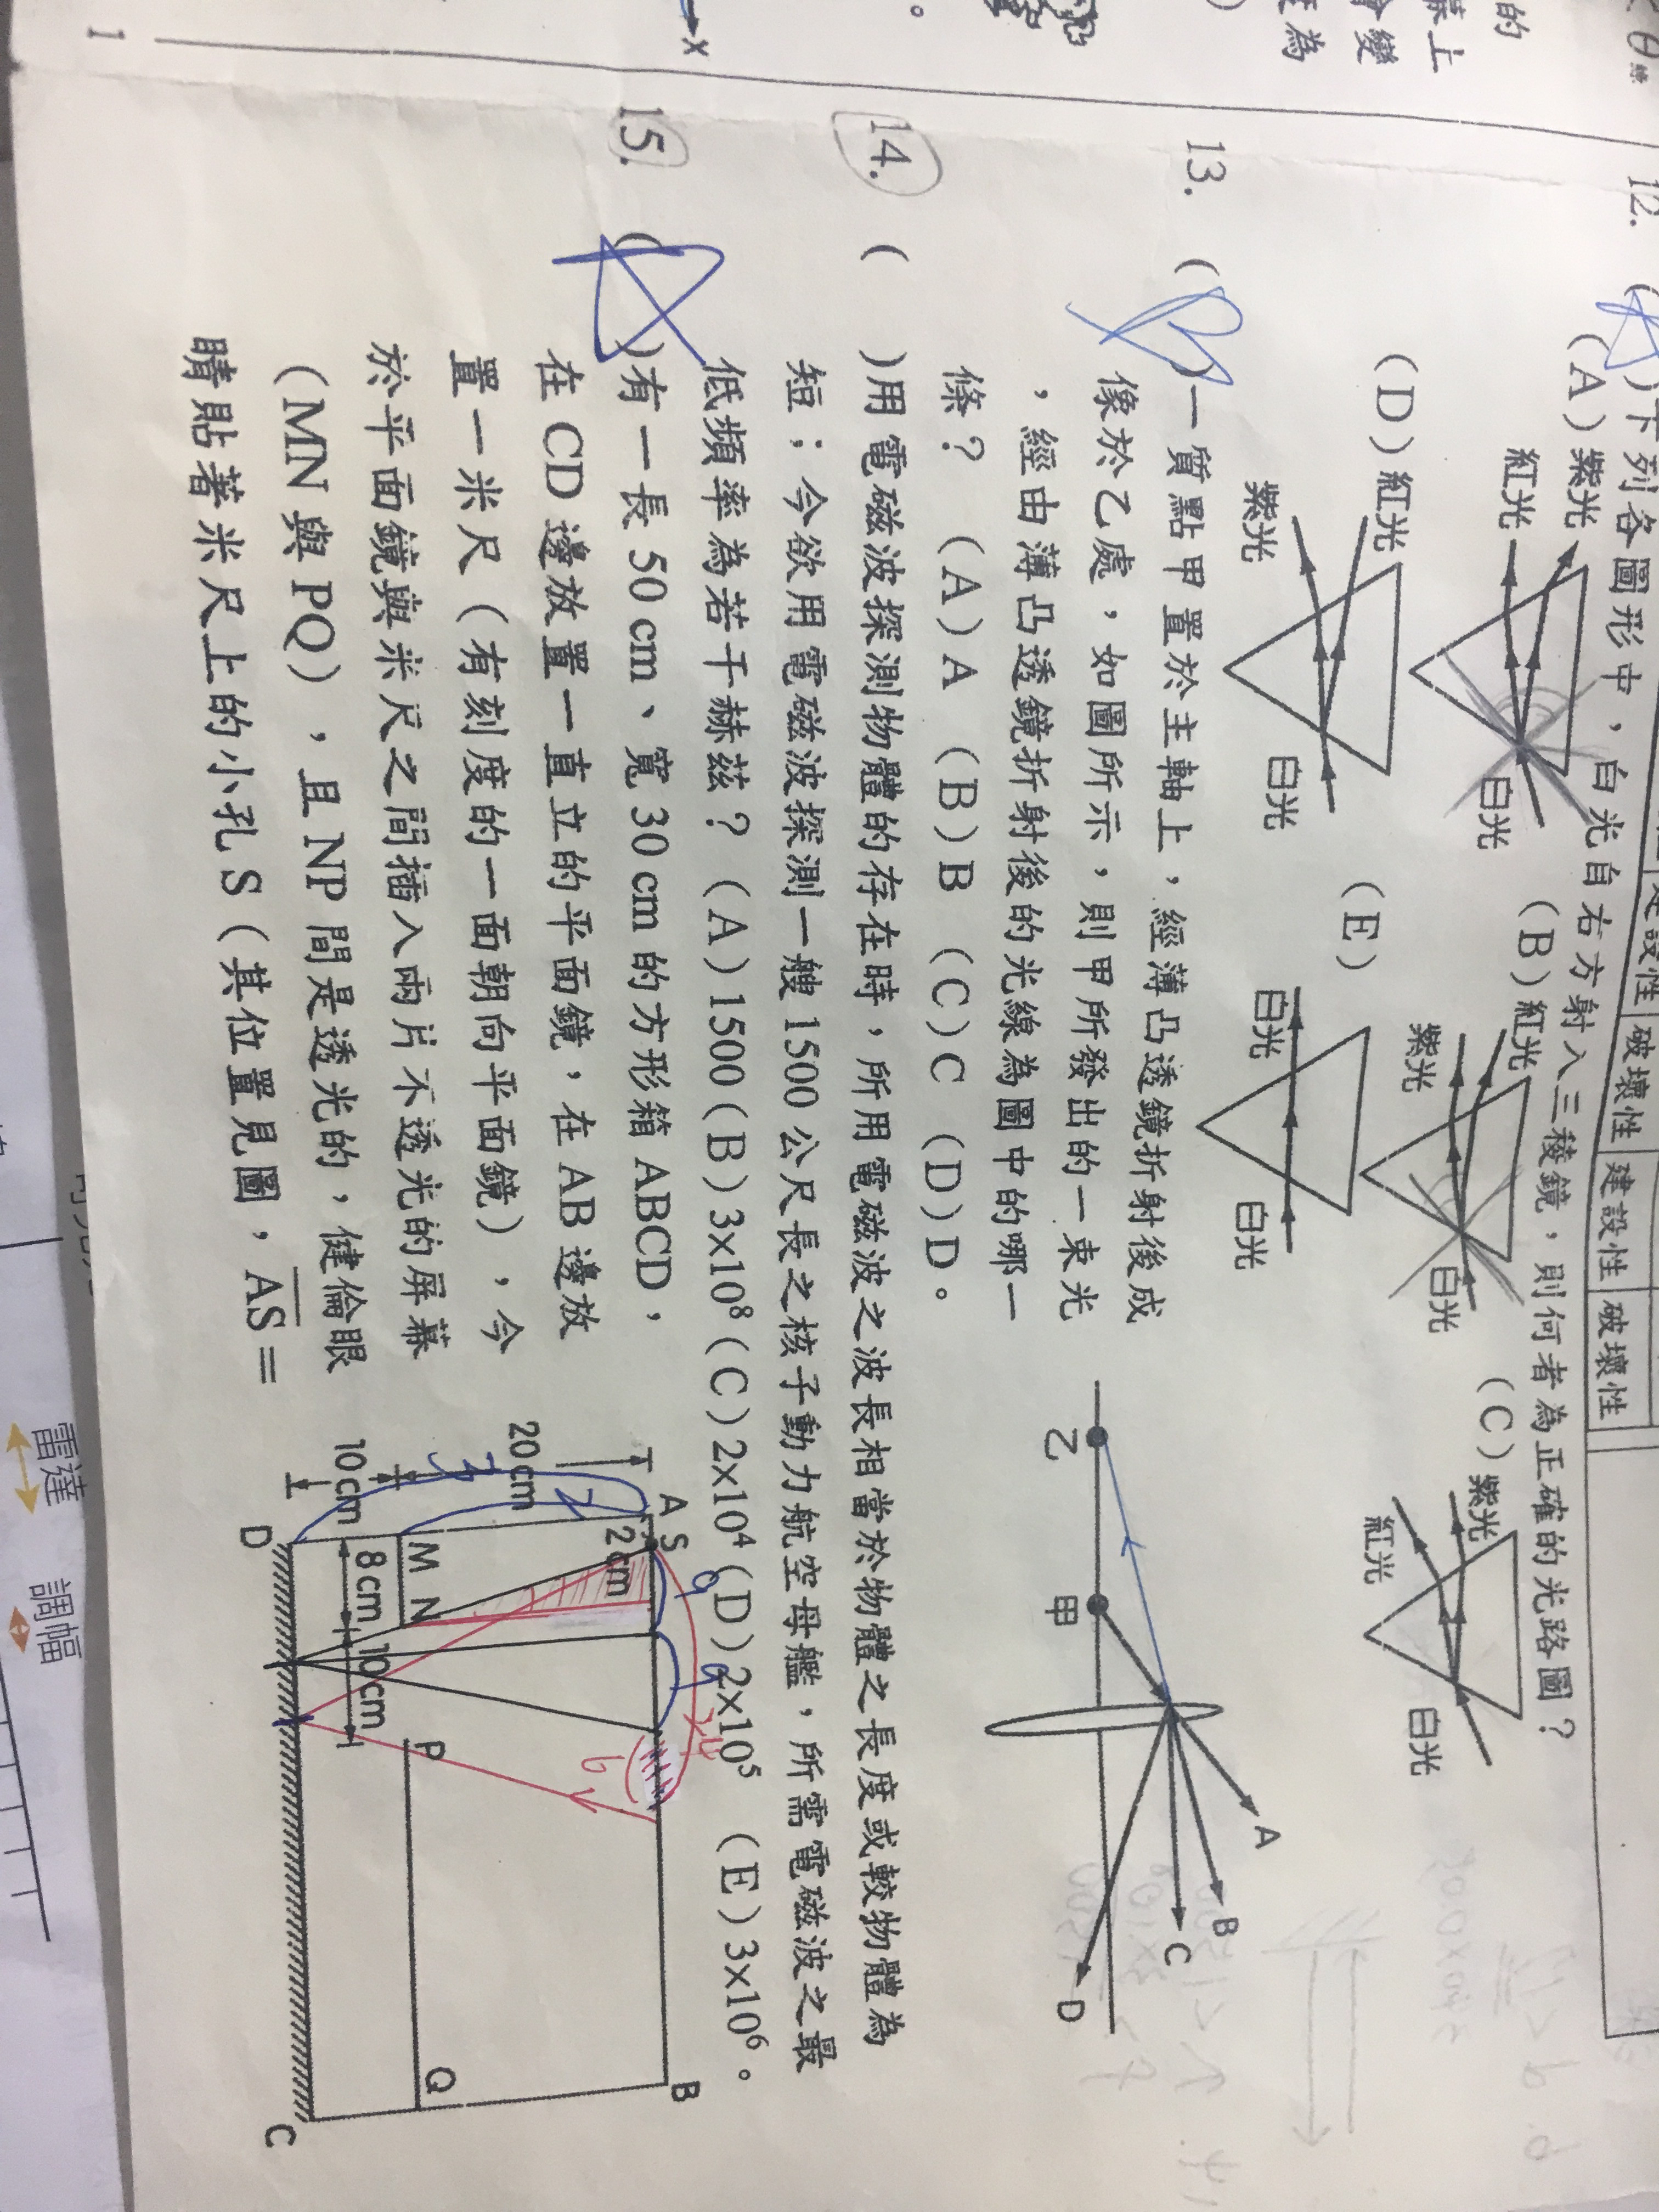 的
上
變
為
θ
x
1
建設性 破壞性 建設性 破壞性
12. ( )下列各圖形中，白光自右方射入三稜鏡，則何者為正確的光路圖？
(A) 紫光 紅光 白光
(B) 紅光 紫光 白光
(C) 紫光 紅光 白光
(D) 紅光 紫光 白光
(E) 白光 白光
13. ( )一質點甲置於主軸上，經薄凸透鏡折射後成
像於乙處，如圖所示，則甲所發出的一束光
，經由薄凸透鏡折射後的光線為圖中的哪一
條？ (A)A (B)B (C)C (D)D。
乙 甲 A B C D
14. ( )用電磁波探測物體的存在時，所用電磁波之波長相當於物體之長度或較物體為
短；今欲用電磁波探測一艘1500公尺長之核子動力航空母艦，所需電磁波之最
低頻率為若干赫茲？(A)1500(B)3x10⁸(C)2x10⁴(D)2x10⁵ (E)3x10⁶。
15. ( )有一長50 cm、寬30 cm的方形箱ABCD，
在CD邊放置一直立的平面鏡，在AB邊放
置一米尺（有刻度的一面朝向平面鏡），今
於平面鏡與米尺之間插入兩片不透光的屏幕
（MN與PQ），且NP間是透光的，健倫眼
睛貼著米尺上的小孔S（其位置見圖，AS＝
A S B
2cm
20cm
M N P Q
10cm
8cm 10cm
D C
6 6
6
雷達 調幅